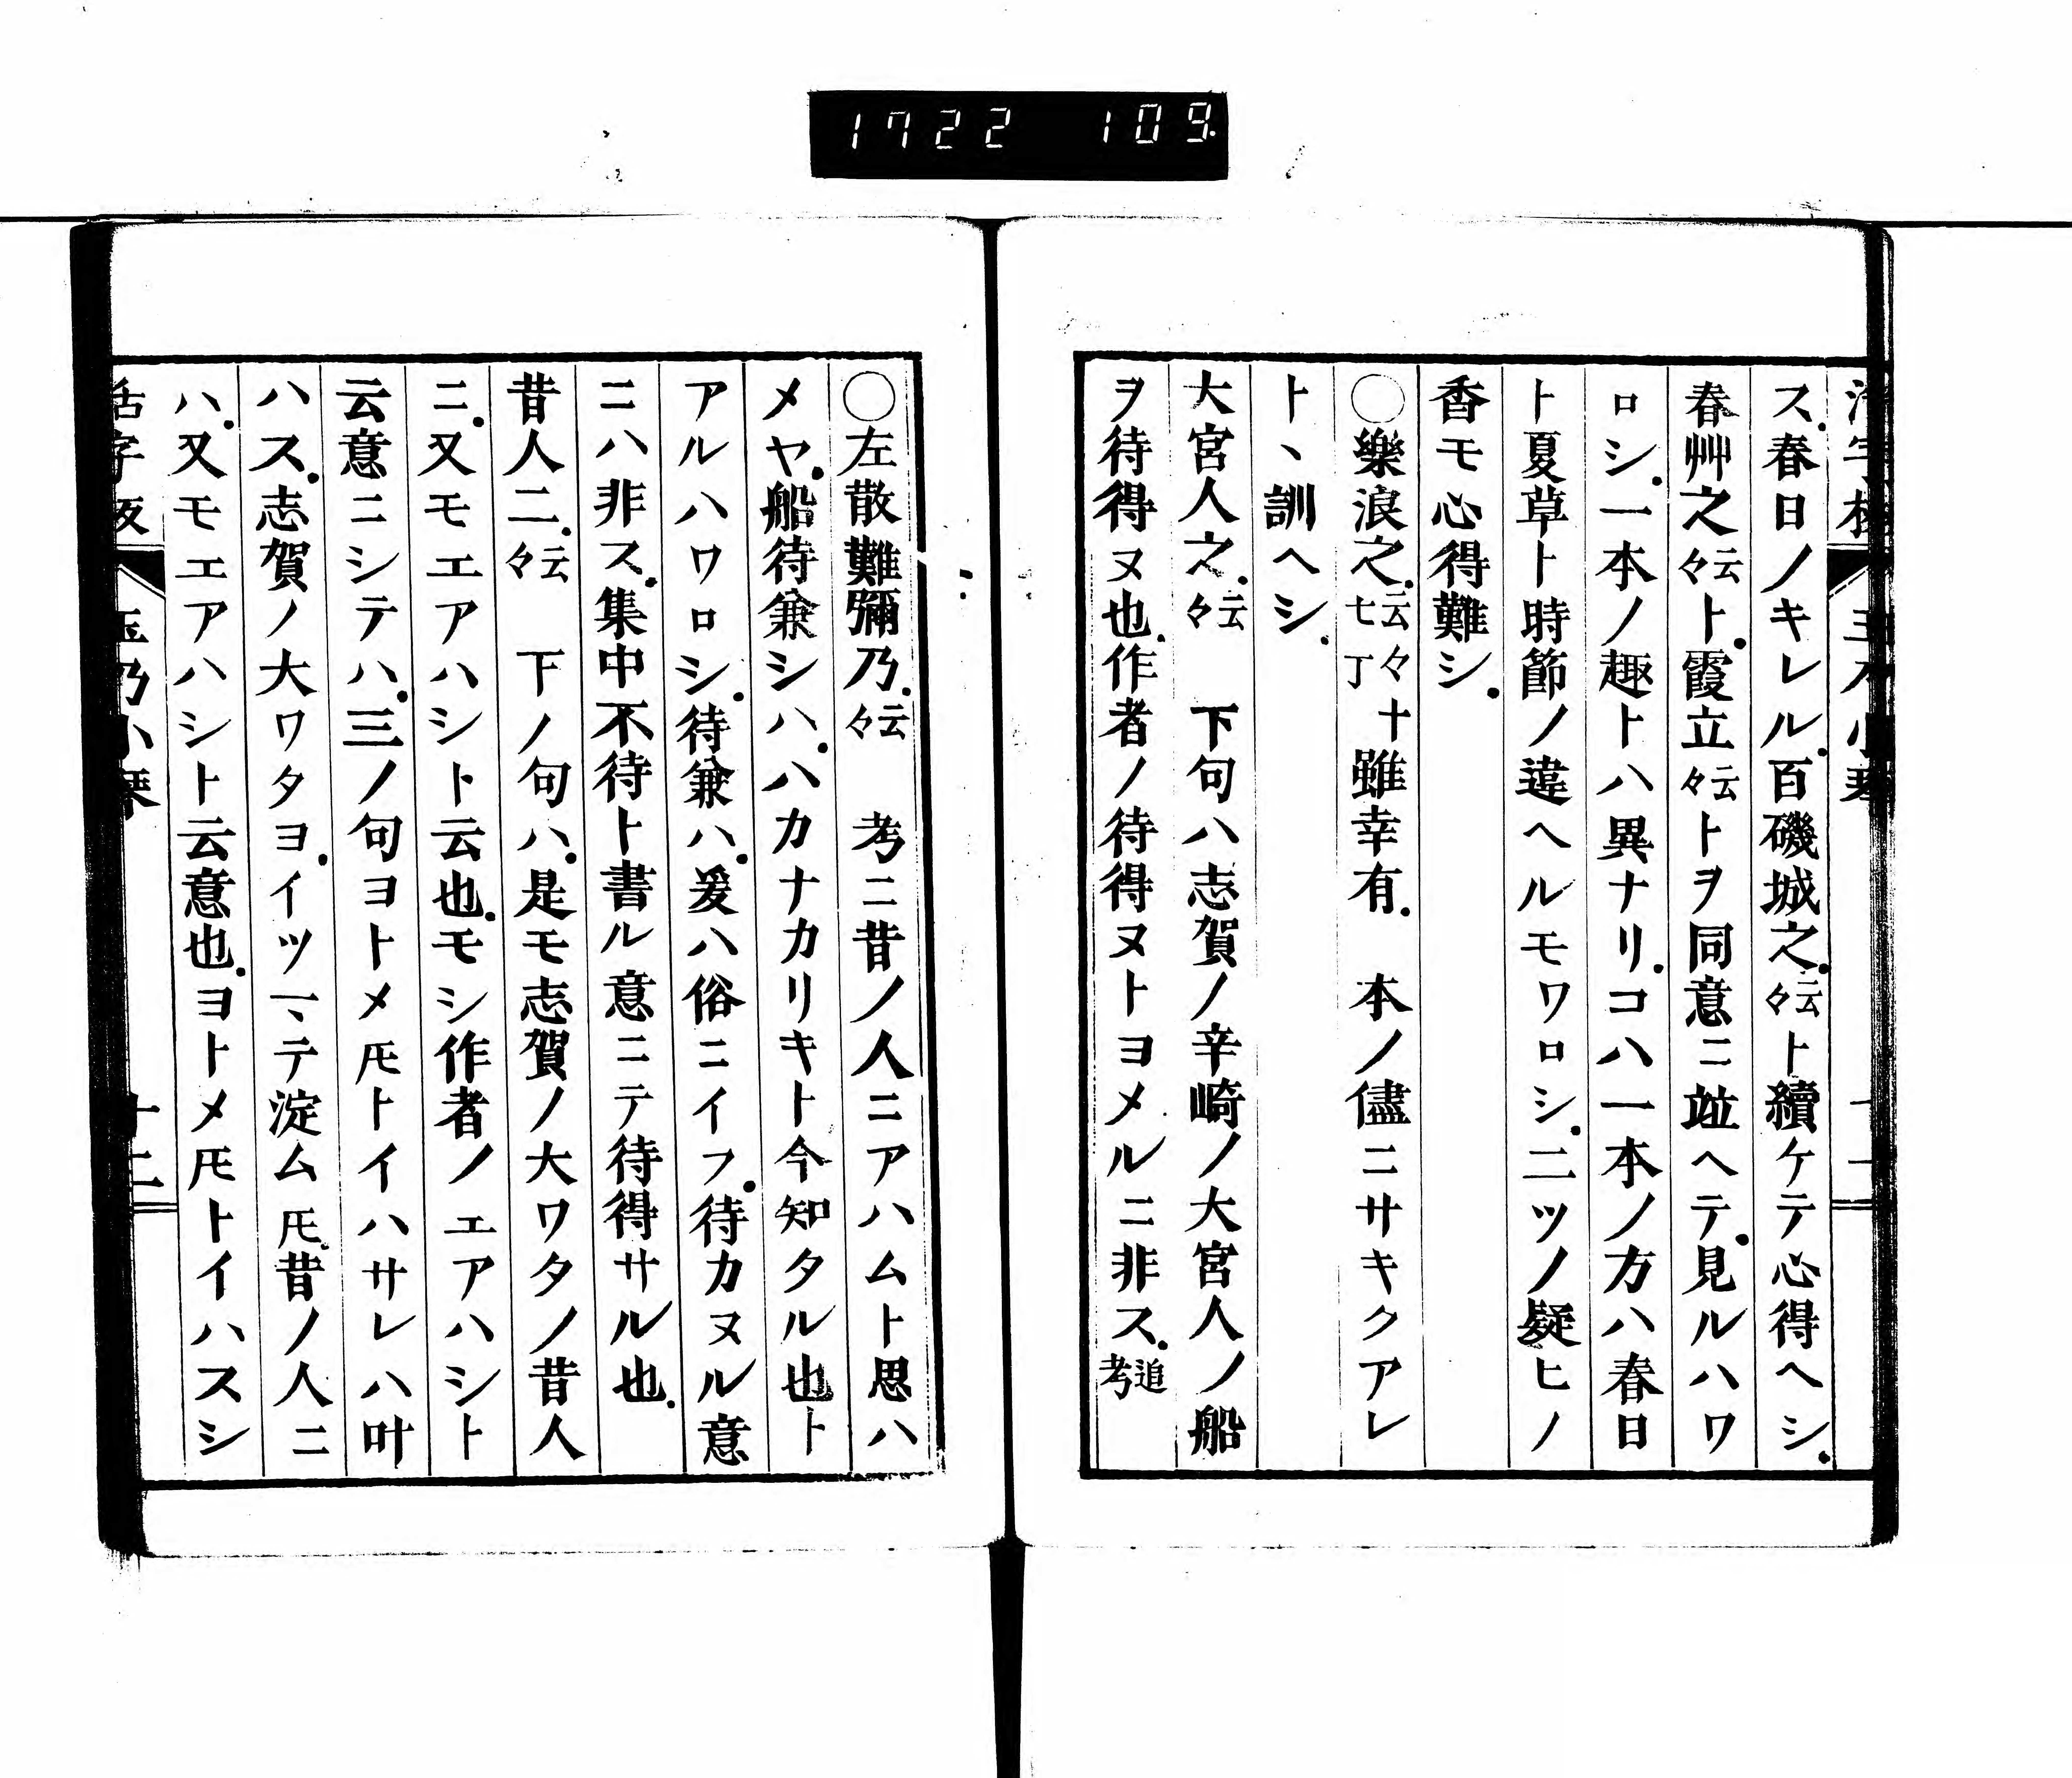 1722 109
ス.春日ノキレル.百磯城之.云々ト續ケテ心得ヘシ.
春艸之云々ト.霞立云々トヲ同意ニ竝ヘテ.見ルハワ
ロシ.一本ノ趣トハ異ナリ.コハ一本ノ方ハ春日
ト夏草ト時節ノ違ヘルモワロシ.二ツノ疑ヒノ
香モ心得難シ.
○樂浪之.云々十七丁 雖幸有. 本ノ儘ニサキクアレ
トヽ訓ヘシ.
大宮人之.云々 下句ハ志賀ノ辛崎ノ大宮人ノ船
ヲ待得ヌ也.作者ノ待得ヌトヨメルニ非ス.追考
○左散難彌乃.云々 考ニ昔ノ人ニアハムト思ハ
メヤ.船待兼シハ.ハカナカリキト今知タル也ト
アルハワロシ.待兼ハ.爰ハ俗ニイフ.待カヌル意
ニハ非ス.集中不待ト書ル意ニテ待得サル也.
昔人二.云々 下ノ句ハ.是モ志賀ノ大ワタノ昔人
ニ.又モエアハシト云也.モシ作者ノエアハシト
云意ニシテハ.三ノ句ヨトメ𪜈トイハサレハ叶
ハス.志賀ノ大ワタヨ.イツマヽテ淀ム𪜈.昔ノ人ニ
ハ.又モエアハシト云意也.ヨトメ𪜈トイハスシ
活字版 玉乃小琴 十二